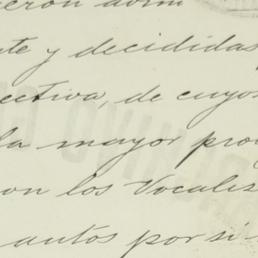 te y decididas
ectiva, de cuyo
la mayor pro
on los Vocales
autos por si